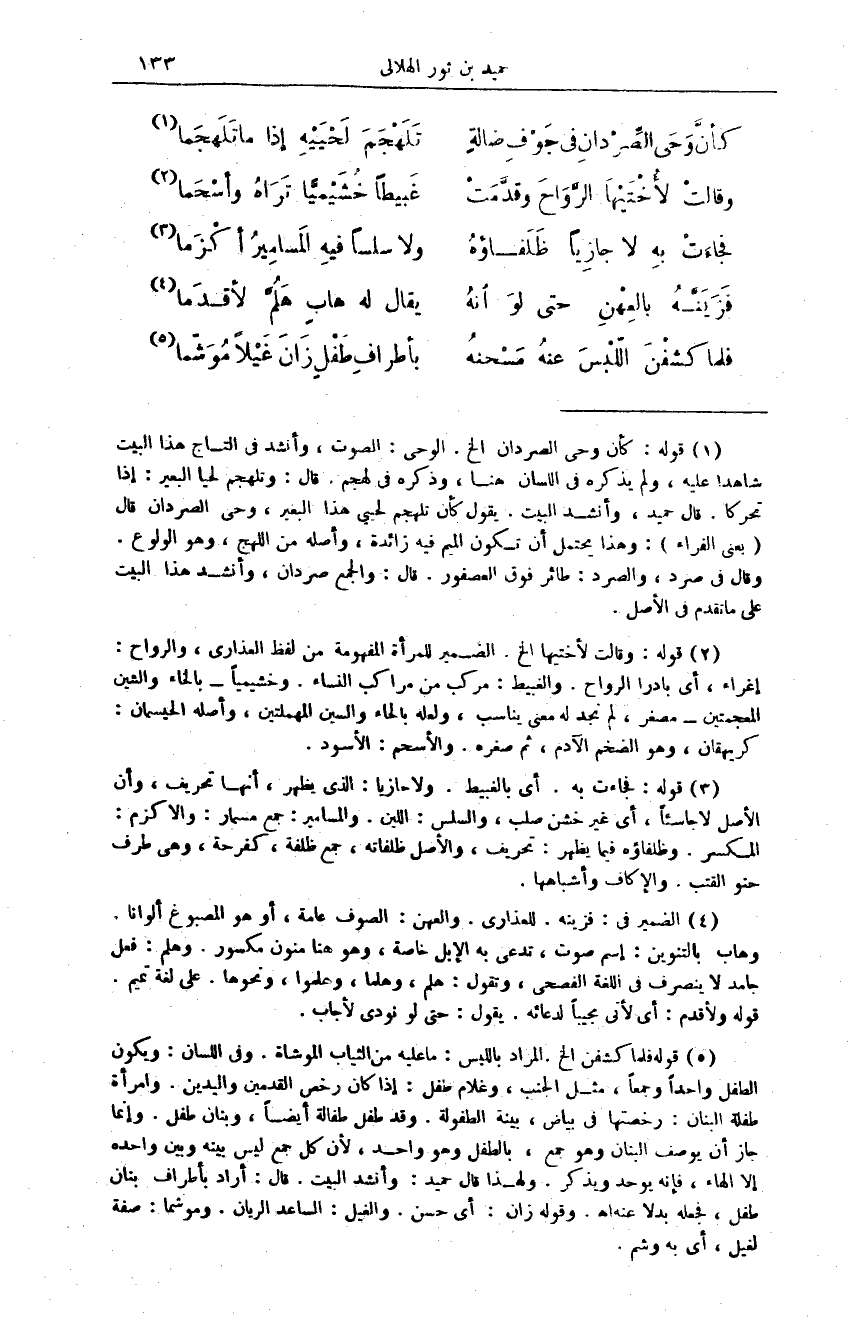 حميد بن ثور الهلالى ١٣٣
كأنَّ وَحَى الصِّرْدانِ فى جَوْفِ ضالةٍ تَلَهْجَمَ لَحْيَيْهِ إذا ماتَلَهجَما (١)
وقالتْ لأُختَيْهَا الرَّوَاحَ وقدَّمَتْ غَبيطاً خُشَيْمِيًّا تَرَاهُ وأسْحَما (٢)
فجاءَتْ بِهِ لا جازِياً ظَلَفاؤهُ ولا سلساً فيهِ المَسامِيرُ أكْزَما (٣)
فَزَيَنَّهُ بالعِهْنِ حتى لوَ أنهُ يقال له هابٍ هَلُمَّ لأقدَما (٤)
فلما كشفْنَ اللّبْسَ عنهُ مَسْحنهُ بأطرافِ طَفْلٍ زَانَ غَيْلاً مُوَشّما (٥)
(١) قوله : كأن وحى الصردان الخ . الوحى : الصوت ، وأنشد فى التاج هذا البيت
شاهدا عليه ، ولم يذكره فى اللسان هنا ، وذكره فى لهجم . قال : وتلهجم لحيا البعير : إذا
تحركا . قال حميد ، وأنشد البيت . يقول كأن تلهجم لحيى هذا البعير ، وحى الصردان قال
( يعنى الفراء ) : وهذا يحتمل أن تكون الميم فيه زائدة ، وأصله من اللهج ، وهو الولوع .
وقال فى صرد ، والصرد : طائر فوق العصفور . قال : والجمع صردان ، وأنشد هذا البيت
على ماتقدم فى الأصل .
(٢) قوله : وقالت لأختيها الخ . الضمير للمرأة المفهومة من لفظ العذارى ، والرواح :
إغراء ، أى بادرا الرواح . والغبيط : مركب من مراكب النساء . وخشيمياً – بالخاء والشين
المعجمتين – مصغر ، لم نجد له معنى يناسب ، ولعله بالحاء والسين المهملتين ، وأصله الحيسمان :
كريهقان ، وهو الضخم الآدم ، ثم صغره . والأسحم : الأسود .
(٣) قوله : فجاءت به . أى بالغبيط . ولاجازيا : الذى يظهر ، أنها تحريف ، وأن
الأصل لاجاسئاً ، أى غير خشن صلب ، والسلس : اللين . والمسامير : جمع مسمار : والاكزم :
المكسر . وظلفاؤه فيما يظهر : تحريف ، والأصل ظلفاته ، جمع ظلفة ، كفرحة ، وهى طرف
حنو القتب . والإكاف وأشباهها .
(٤) الضمير فى : فزينه . للعذارى . والعهن : الصوف عامة ، أو هو المصبوغ ألوانا .
وهاب بالتنوين : إسم صوت ، تدعى به الإبل خاصة ، وهو هنا منون مكسور . وهلم : فعل
جامد لا ينصرف فى اللغة الفصحى ، وتقول : هلم ، وهلما ، وهلموا ، ونحوها . على لغة تميم .
قوله ولأقدم : أى لأتى مجيباً لدعائه . يقول : حتى لو نودى لأجاب .
(٥) قوله فلما كشفن الخ . المراد باللبس : ماعليه من الثياب الموشاة . وفى اللسان : ويكون
الطفل واحداً وجمعاً ، مثل الجنب ، وغلام طفل : إذا كان رخص القدمين واليدين . وامرأة
طفلة البنان : رخصتها فى بياض ، بينة الطفولة . وقد طفل طفالة أيضاً ، وبنان طفل . وإنما
جاز أن يوصف البنان وهو جمع ، بالطفل وهو واحد ، لأن كل جمع ليس بينه وبين واحده
إلا الهاء ، فإنه يوحد ويذكر . ولهذا قال حميد : وأنشد البيت . قال : أراد بأطراف بنان
طفل ، فجعله بدلا عنه اه . وقوله زان : أى حسن . والغيل : الساعد الريان . وموشما : صفة
لغيل ، أى به وشم .